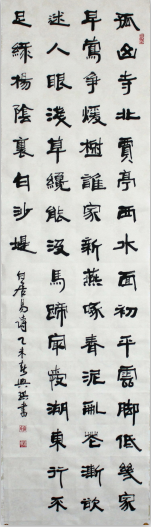 孤山寺北賈亭西水面初平雲脚低幾家
早鶯争暖樹誰家新燕啄春泥亂花漸欲
迷人眼淺草纔能没馬蹄最愛湖東行不
足綠楊陰裏白沙堤
白居易詩乙未春興書